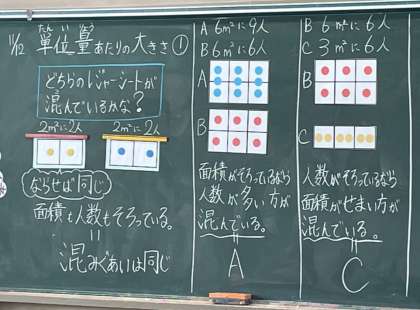 11/12 単位量あたりの大きさ①
たんい りょう
どちらのレジャーシートが
混んでいるかな？
2m²に2人 2m²に2人
ならせば同じ
面積も人数もそろっている。
=
混みぐあいは同じ
A 6m²に9人
B 6m²に6人
A
B
面積がそろっているなら
人数が多い方が
混んでいる。
A
B 6m²に6人
C 3m²に6人
B
C
人数がそろっているなら
面積がせまい方が
混んでいる。
C